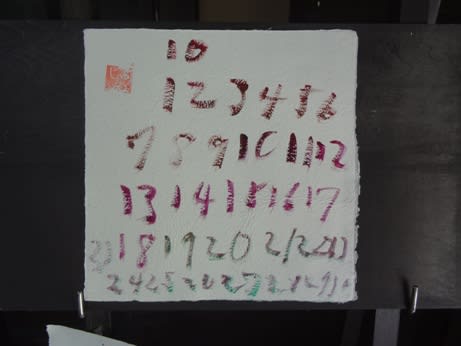 10
1 2 3 4 5 6
7 8 9 10 11 12
13 14 15 16 17
18 19 20 21 22 23
24 25 26 27